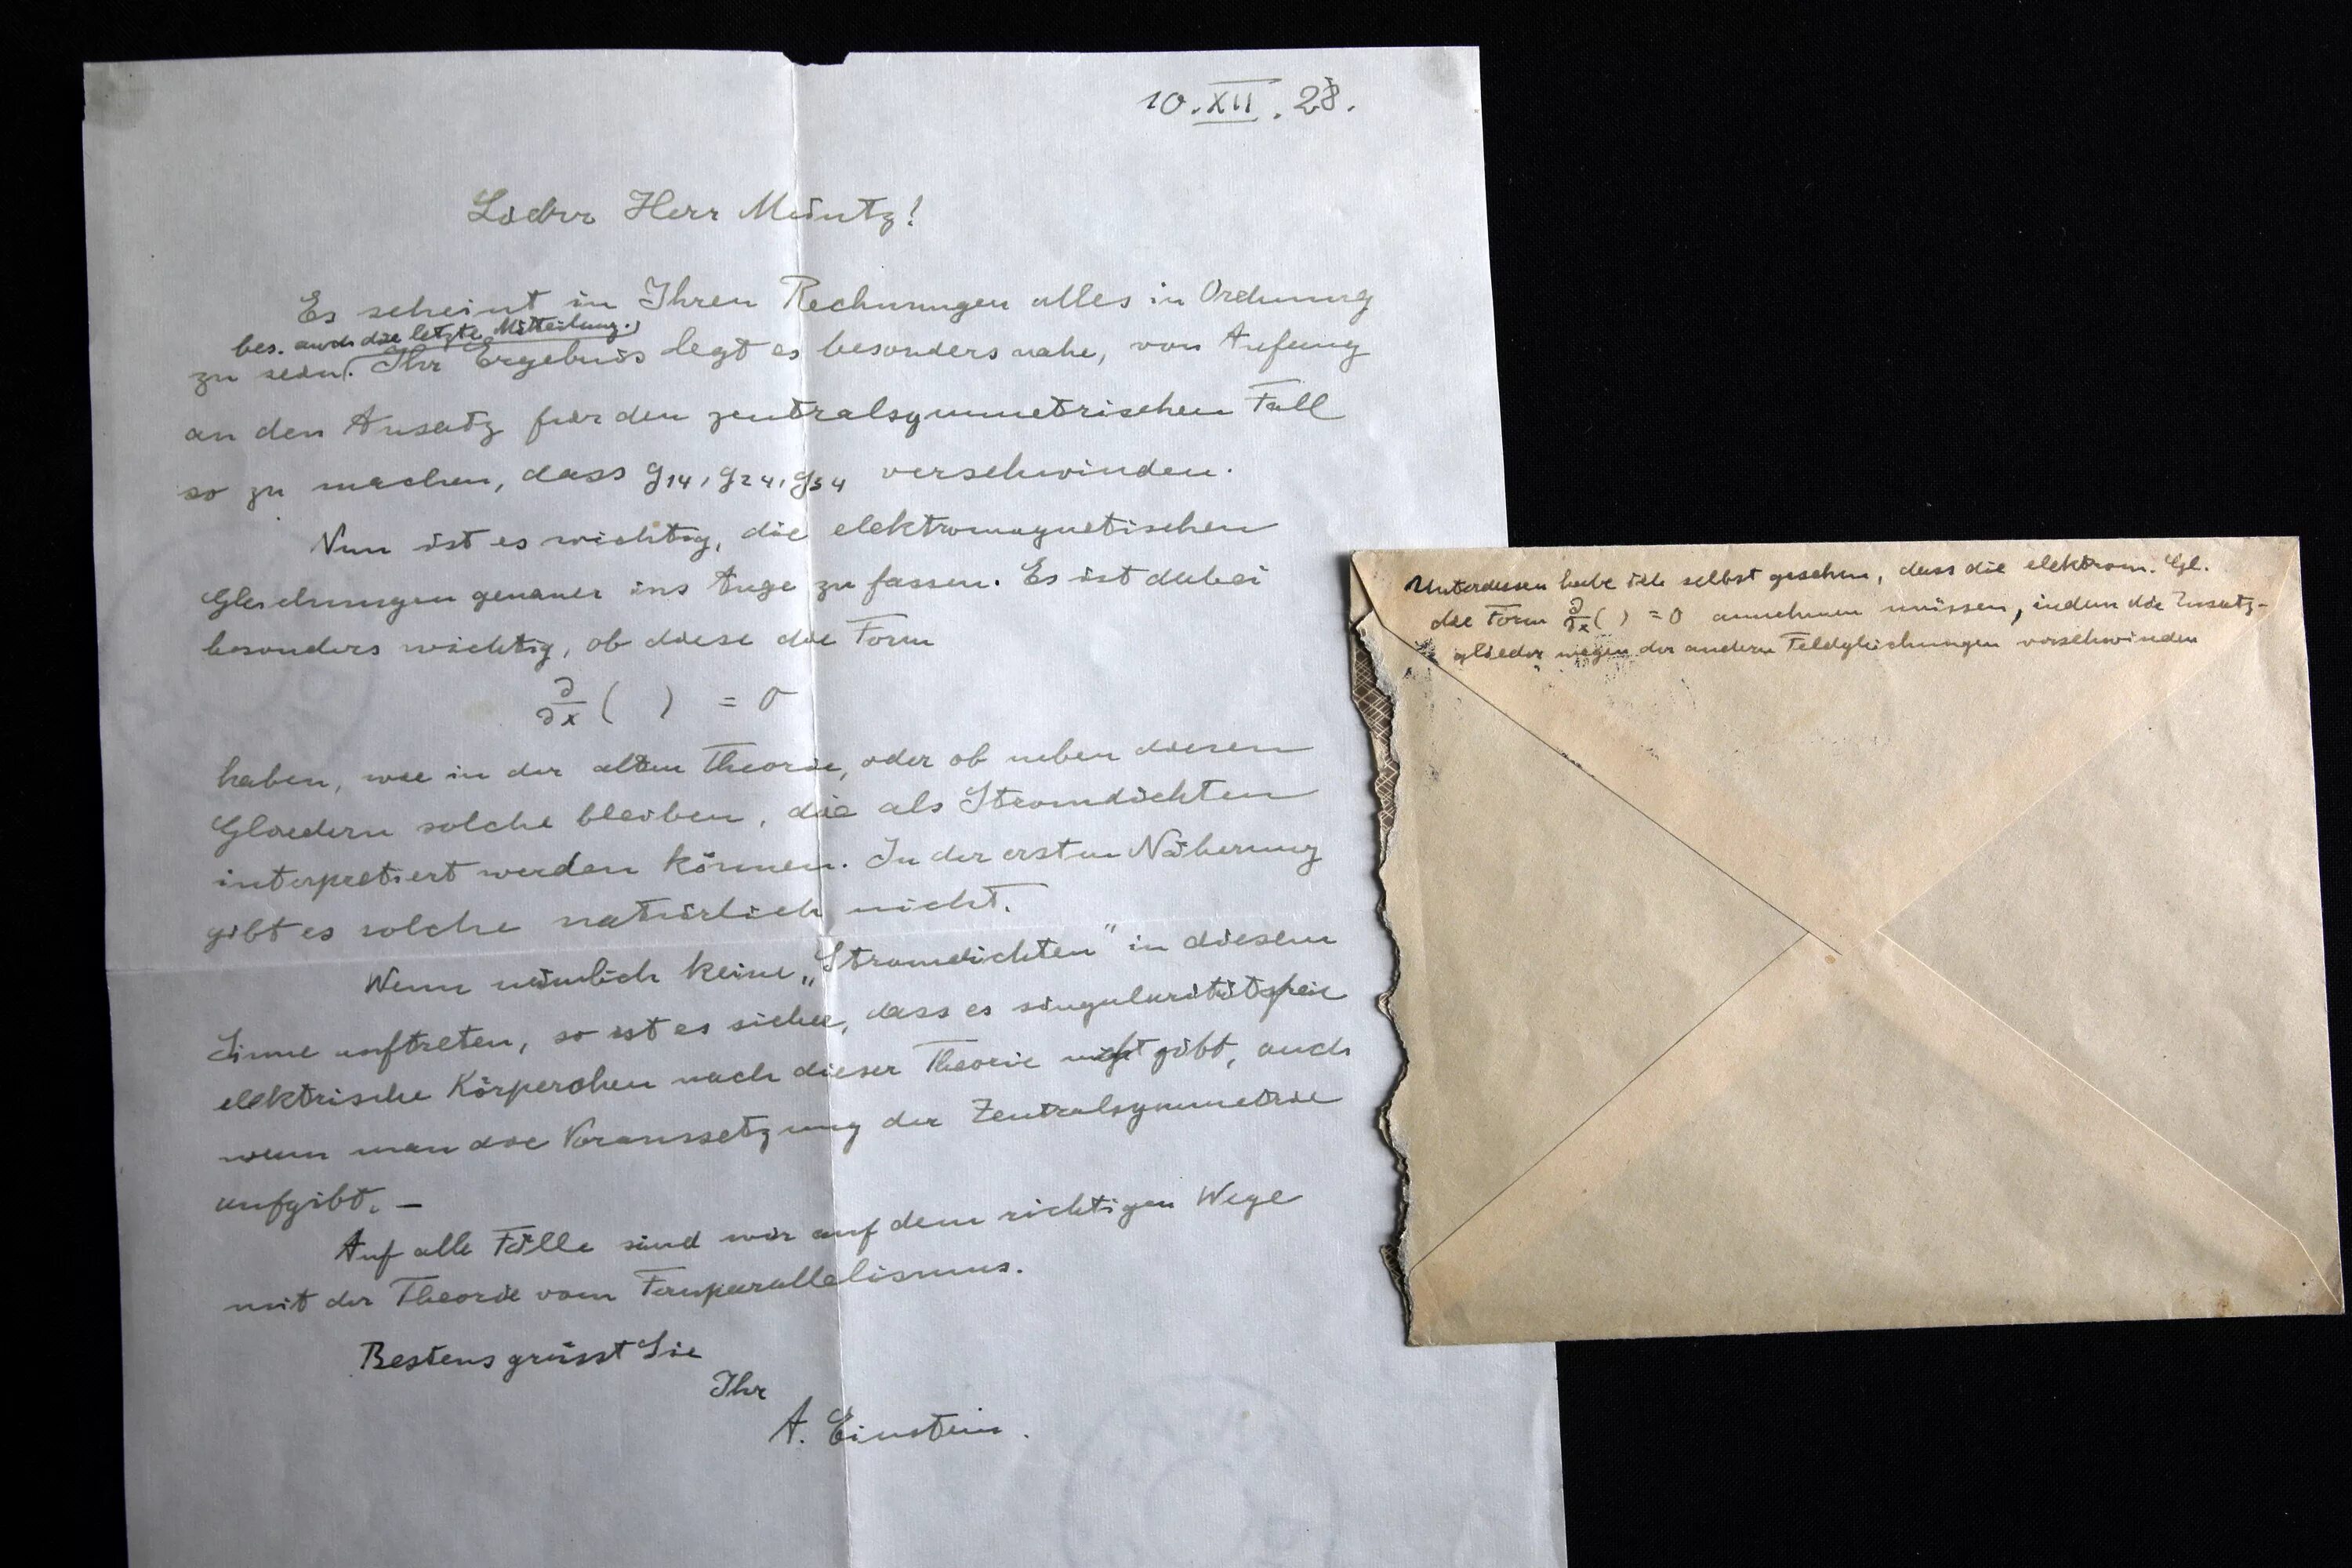 10.XII.28.
Lieber Herr Müntz!
Es scheint in Ihren Rechnungen alles in Ordnung
bes. auch die letzte Mitteilung.)
zu sein(. Ihr Ergebnis legt es besonders nahe, von Anfang
an den Ansatz für den zentralsymmetrischen Fall
so zu machen, dass g₁₄, g₂₄, g₃₄ verschwinden.
Nun ist es wichtig, die elektromagnetischen
Gleichungen genauer ins Auge zu fassen. Es ist dabei
besonders wichtig, ob diese die Form
∂/∂x ( ) = 0
haben, wie in der alten Theorie, oder ob neben diesen
Gliedern solche bleiben, die als Stromdichten
interpretiert werden können. In der ersten Näherung
gibt es solche natürlich nicht.
Wenn nämlich keine „Stromdichten" in diesem
Sinne auftreten, so ist es sicher, dass es singularitätsfreie
elektrische Körperchen nach dieser Theorie nicht gibt, auch
wenn man die Voraussetzung der Zentralsymmetrie
aufgibt. —
Auf alle Fälle sind wir auf dem richtigen Wege
mit der Theorie vom Fernparallelismus.
Bestens grüsst Sie
Ihr
A. Einstein.
Unterdessen habe ich selbst gesehen, dass die elektrom. Gl.
die Form ∂/∂x ( ) = 0 annehmen müssen, indem die Zusatz-
glieder wegen der andern Feldgleichungen verschwinden